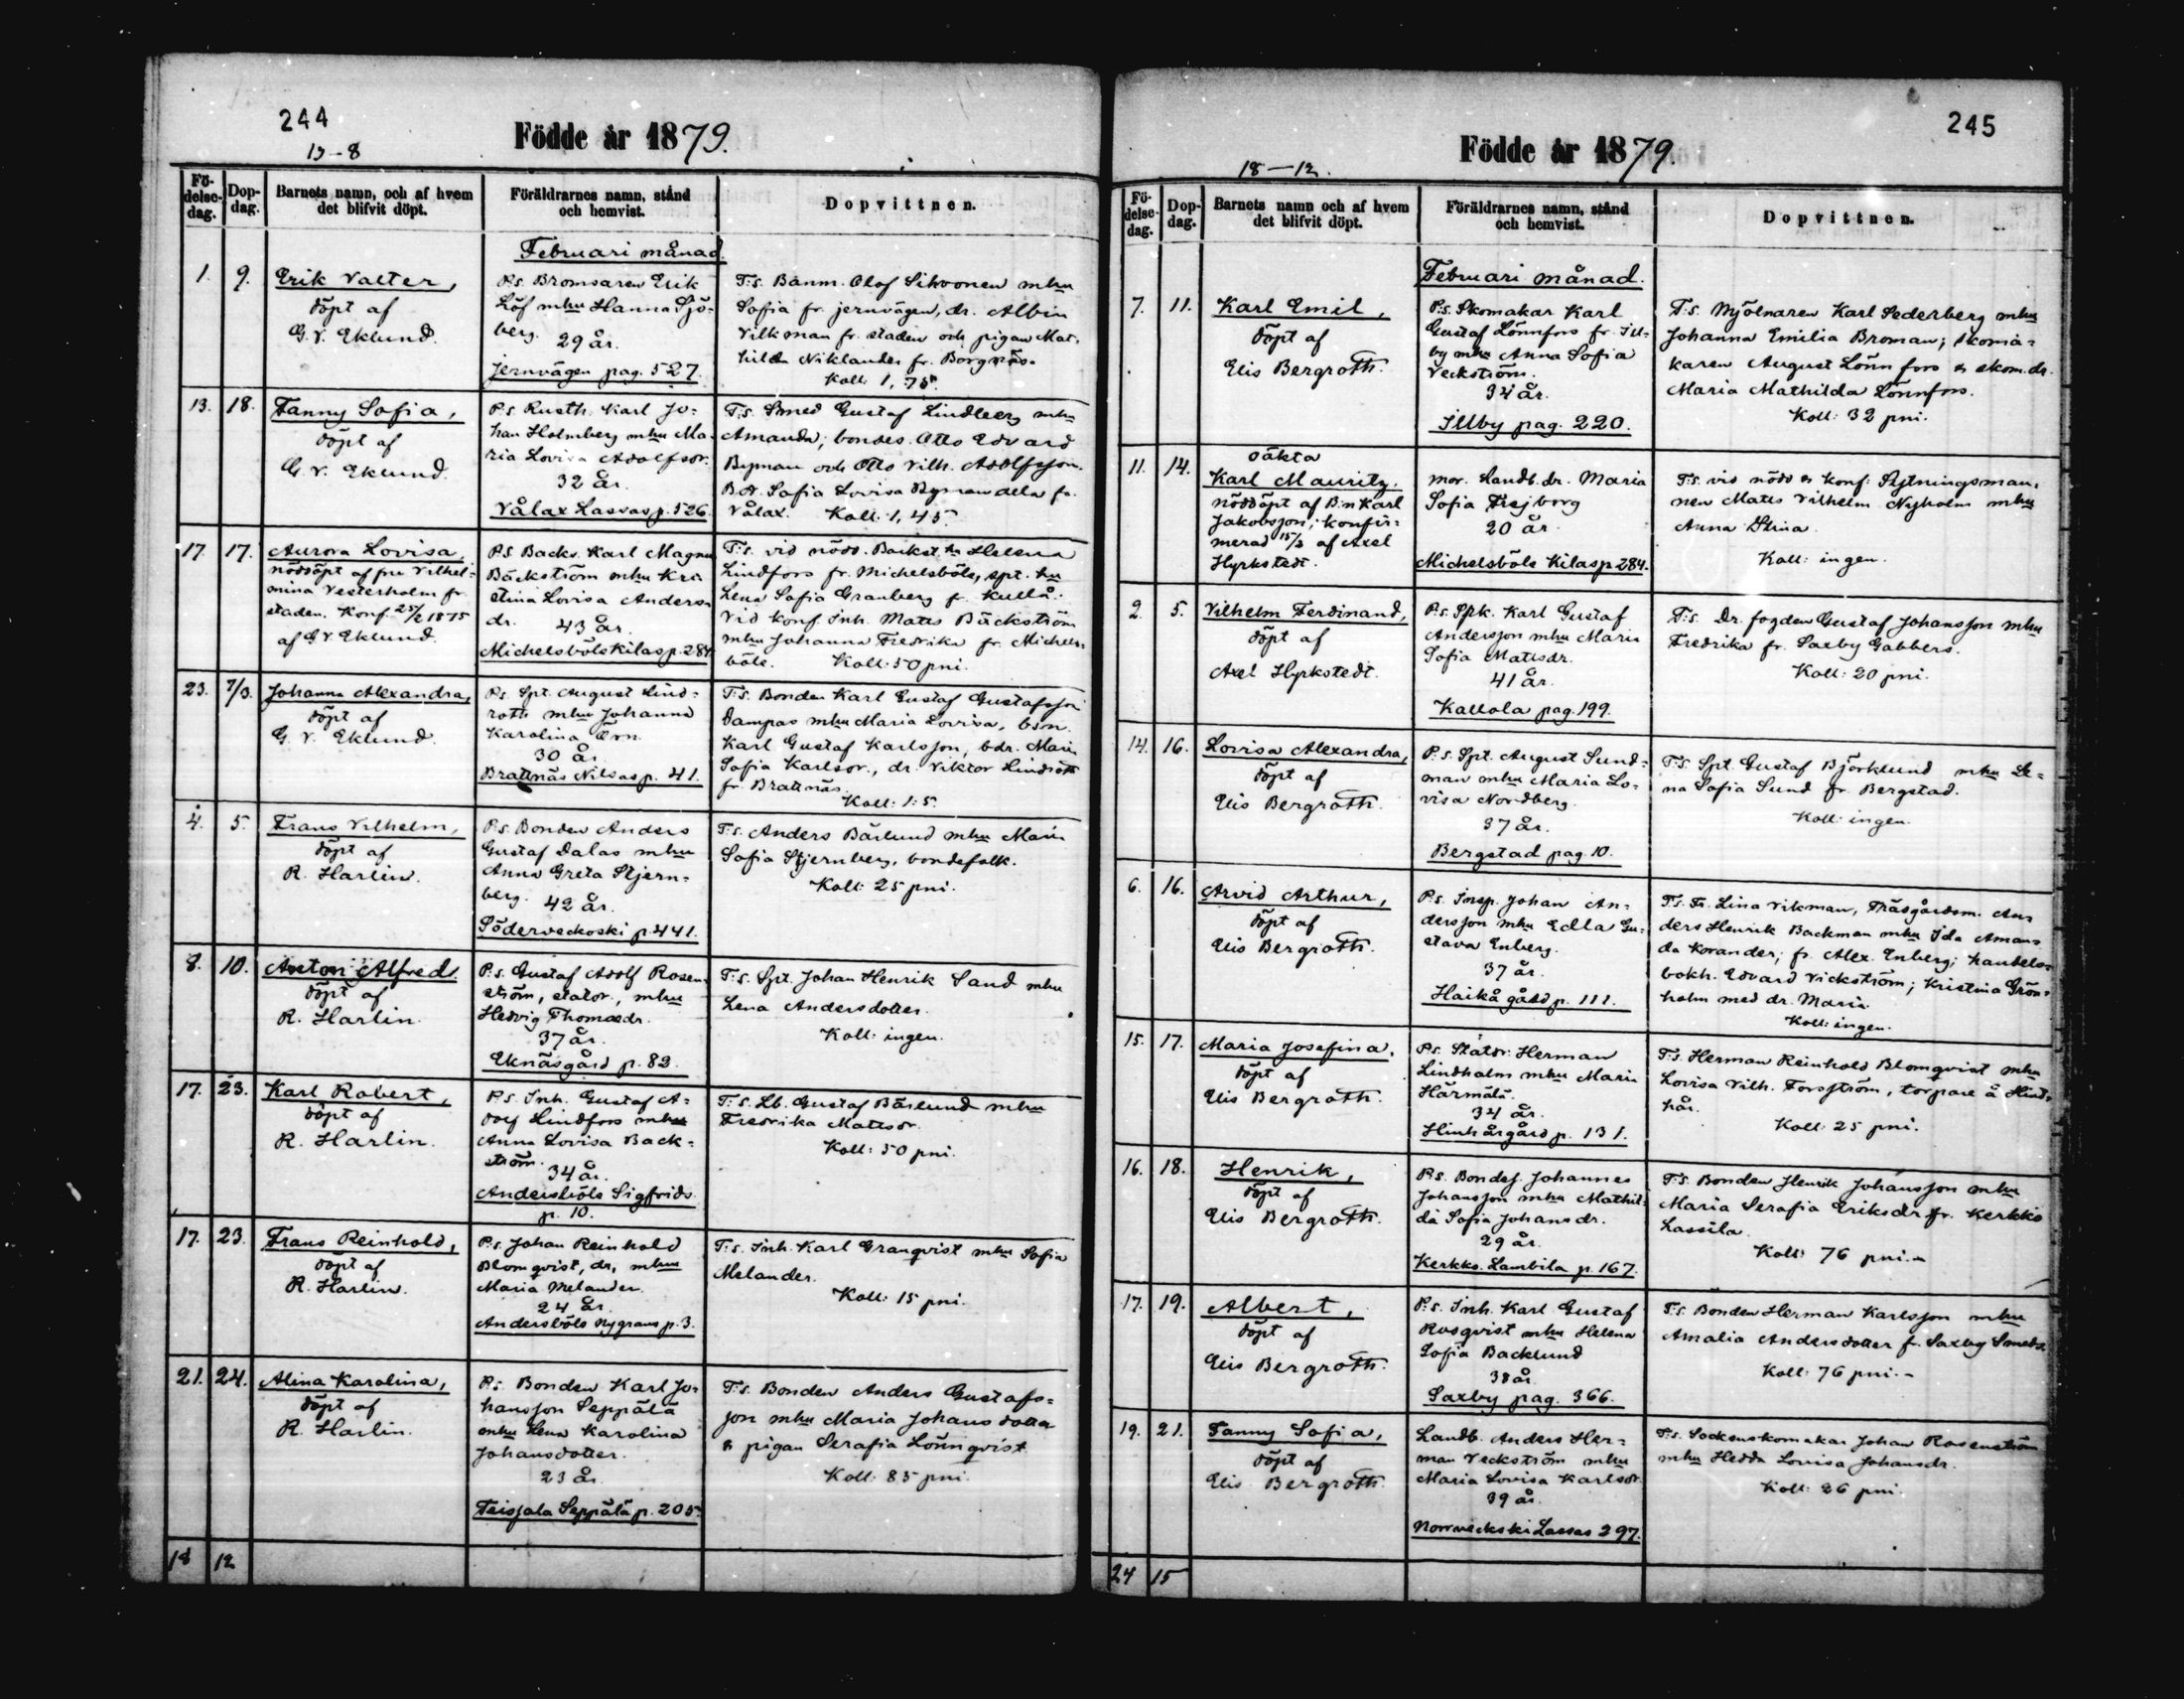 244
Födde år 1879.
13-8
Fö-
delse-
dag.
Dop-
dag.
Barnets namn, och af hvem
det blifvit döpt.
Föräldrarnes namn, stånd
och hemvist.
Dopvittnen.
Februari månad.
1. 9.
Erik Valter,
döpt af
G. V. Eklund.
P:s. Bromsaren Erik
Löf mhu Hanna Sjö-
berg.
29 år.
Jernvägen pag. 527.
T:s. Banm. Olof Sihvonen mhu
Sofia fr. jernvägen, dr. Albin
Vilkman fr. staden och pigan Mat-
hilda Niklander fr. Borgnäs.
Koll. 1,75.
13. 18.
Fanny Sofia,
döpt af
G. V. Eklund.
P.s. Rusth. Karl Jo-
han Holmberg mhu Ma-
ria Lovisa Adolfsdr.
32 år.
Vålax Lassas p. 526.
T:s. Smed Gustaf Lindberg mhu
Amanda; bondes. Otto Edvard
Byman och Otto Vilh. Adolfsson.
B.dr. Sofia Lovisa Bymandela fr.
Vålax. Koll. 1,45.
17. 17.
Aurora Lovisa,
nöddöpt af fru Vilhel-
mina Vesterholm fr.
staden. Konf. 25/2 1875
af G V. Eklund.
P.s. Backs. Karl Magnus
Bäckström mhu Kri-
stina Lovisa Anders-
dr. 43 år.
Michelsböle Kilas p. 284.
T:s. vid nödd. Backst. hu Helena
Lindfors fr. Michelsböle, spt. hu
Lena Sofia Granberg fr. Kullå.
Vid konf. Inh. Matts Bäckström
mhu Johanna Fredrika fr. Michels-
böle. Koll: 50 pni.
23. 7/3.
Johanna Alexandra,
döpt af
G. V. Eklund.
P:s. Spt. August Lind-
roth mhu Johanna
Karolina Örn.
30 år.
Brattnäs Nilsas p. 41.
T:s. Bonden Karl Gustaf Gustafsson
Dampas mhu Maria Lovisa, bsn.
Karl Gustaf Karlsson, bdr. Maria
Sofia Karlsdr., dr. Viktor Lindroth
fr. Brattnäs.
Koll: 1:5.
4. 5.
Frans Vilhelm,
döpt af
R. Harlin.
P:s. Bonden Anders
Gustaf Dalas mhu
Anna Greta Stjern-
berg. 42 år.
Söderveckoski p. 441.
T:s. Anders Bärlund mhu Maria
Sofia Stjernberg, bondefolk.
Koll: 25 pni.
8. 10.
Anton Alfred.
döpt af
R. Harlin.
P:s. Gustaf Adolf Rosen-
ström, statdr., mhu
Hedvig Thomasdr.
37 år.
Eknäsgård p. 82.
T:s. Spt. Johan Henrik Sand mhu
Lena Andersdotter.
Koll: ingen.
17. 23.
Karl Robert,
döpt af
R. Harlin.
P:s. Inh. Gustaf A-
dolf Lindfors mhu
Anna Lovisa Back-
ström.
34 år.
Andersböle Sigfrids
p. 10.
T:s. Lb. Gustaf Bärlund mhu
Fredrika Mattsdr.
Koll: 50 pni.
17. 23.
Frans Reinhold,
döpt af
R. Harlin.
P:s. Johan Reinhold
Blomqvist, dr, mhu
Maria Melander.
24 år.
Andersböle Nygrans p. 3.
T:s. Inh. Karl Granqvist mhu Sofia
Melander.
Koll: 15 pni.
21. 24.
Alina Karolina,
döpt af
R. Harlin.
P:s. Bonden Karl Jo-
hansson Seppälä
mhu Lena Karolina
Johansdotter.
23 år.
Teisjala Seppälä p. 205.
T:s. Bonden Anders Gustafs-
son mhu Maria Johansdotter
& pigan Serafia Lönnqvist.
Koll: 85 pni.
18 12
245
Födde år 1879.
18-12.
Fö-
delse-
dag.
Dop-
dag.
Barnets namn och af hvem
det blifvit döpt.
Föräldrarnes namn, stånd
och hemvist.
Dopvittnen.
Februari månad.
7. 11.
Karl Emil,
döpt af
Elis Bergroth.
P:s. Skomakar Karl
Gustaf Lönnfors fr. Ill-
by mhu Anna Sofia
Veckström.
34 år.
Illby pag. 220.
T:s. Mjölnaren Karl Sederberg mhu
Johanna Emilia Broman; skoma-
karen August Lönnfors & skom.dr.
Maria Mathilda Lönnfors.
Koll: 32 pni.
11. 14.
oäkta
Karl Mauritz.
nöddöpt af B:n Karl
Jakobsson; konfir-
merad 15/2 af Axel
Hyrkstedt.
mor. Landb. dr. Maria
Sofia Frejborg
20 år.
Michelsböle Kilas p 284.
T:s vid nödd & konf: Flytningsman-
nen Matts Vilhelm Nyholm mhu
Anna Stina.
Koll: ingen.
2. 5.
Vilhelm Ferdinand,
döpt af
Axel Hyrkstedt.
P:s. Spk. Karl Gustaf
Andersson mhu Maria
Sofia Mattsdr.
41 år.
Kallola pag. 199.
T:s. Dr. fogden Gustaf Johansson mhu
Fredrika fr. Saxby Gabbers.
Koll: 20 pni.
14. 16.
Lovisa Alexandra,
döpt af
Elis Bergroth.
P:s. Spt. August Sund-
man mhu Maria Lo-
visa Nordberg.
37 år.
Bergstad pag. 10.
T:s. Spt. Gustaf Björklund mhu Le-
na Sofia Sund fr. Bergstad.
Koll: ingen.
6. 16.
Arvid Arthur,
döpt af
Elis Bergroth.
P:s. Insp. Johan An-
dersson mhu Edla Gu-
stava Enberg.
37 år.
Haikå gård p. 111.
T:s. Fr. Lina Vikman, Trädgårdsm. An-
ders Henrik Backman mhu Ida Aman-
da Korander; fr. Alex. Enberg; handels-
bokh. Edvard Vickström; Kristina Grön-
holm med dr. Maria.
Koll: ingen.
15. 17.
Maria Josefina,
döpt af
Elis Bergroth.
P:s. Statdr. Herman
Lindholm mhu Maria
Härmälä.
34 år.
Hinhårgård p. 131.
T:s. Herman Reinhold Blomqvist mhu
Lovisa Vilh. Forsström, torpare å Hind-
hår.
Koll: 25 pni.
16. 18.
Henrik,
döpt af
Elis Bergroth.
P:s. Bondes. Johannes
Johansson mhu Mathil-
da Sofia Johansdr.
29 år.
Kerkko Lambila p. 167.
T:s. Bonden Henrik Johansson mhu
Maria Serafia Eriksdr fr. Kerkko
Lassila.
Koll: 76 pni.-
17. 19.
Albert,
döpt af
Elis Bergroth.
P:s. Inh. Karl Gustaf
Rosqvist mhu Helena
Sofia Backlund
38 år.
Saxby pag. 366.
T:s. Bonden Herman Karlsson mhu
Amalia Andersdotter fr. Saxby Smeds.
Koll: 76 pni.-
19. 21.
Fanny Sofia,
döpt af
Elis Bergroth.
Landb. Anders Her-
man Veckström mhu
Maria Lovisa Karlsdr.
39 år.
Norrveckoski Lassas 297.
T:s. Sockenskomakar Johan Rosenström
mhu Hedda Lovisa Johansdr.
Koll: 26 pni.
24 15